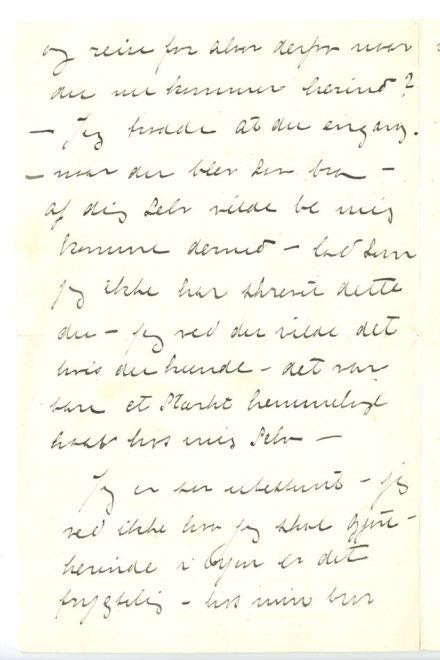 og reise for alvor derfra naar
du nu kommer herind?
– Jeg trodde at du engang.
– naar du blev saa bra –
af dig selv vilde be mig
komme derned – lad som
jeg ikke har skrevet dette
du – jeg ved du vilde det
hvis du kunde – det var
bare et stærkt hemmeligt
haab hos mig selv –
Jeg er saa ubestemt – jeg
ved ikke hva jeg skal gjøre –
herinde i byen er det
frygtelig – hos min bror